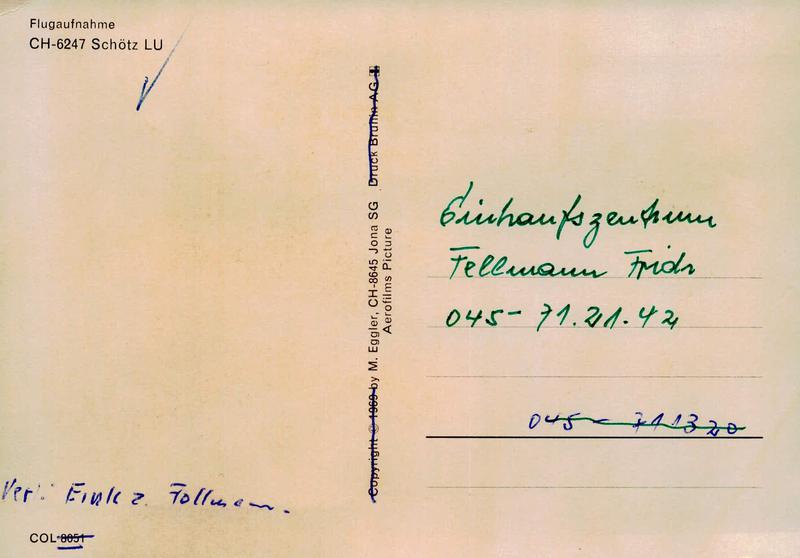 Flugaufnahme
CH-6247 Schötz LU
Copyright © 1989 by M. Eggler, CH-8645 Jona SG Druck Bruhin AG
Aerofilms Picture
Einkaufszentrum
Fellmann Frido
045-71.21.42
045-711320
Verl. Eink z. Fellmann.
COL 8051